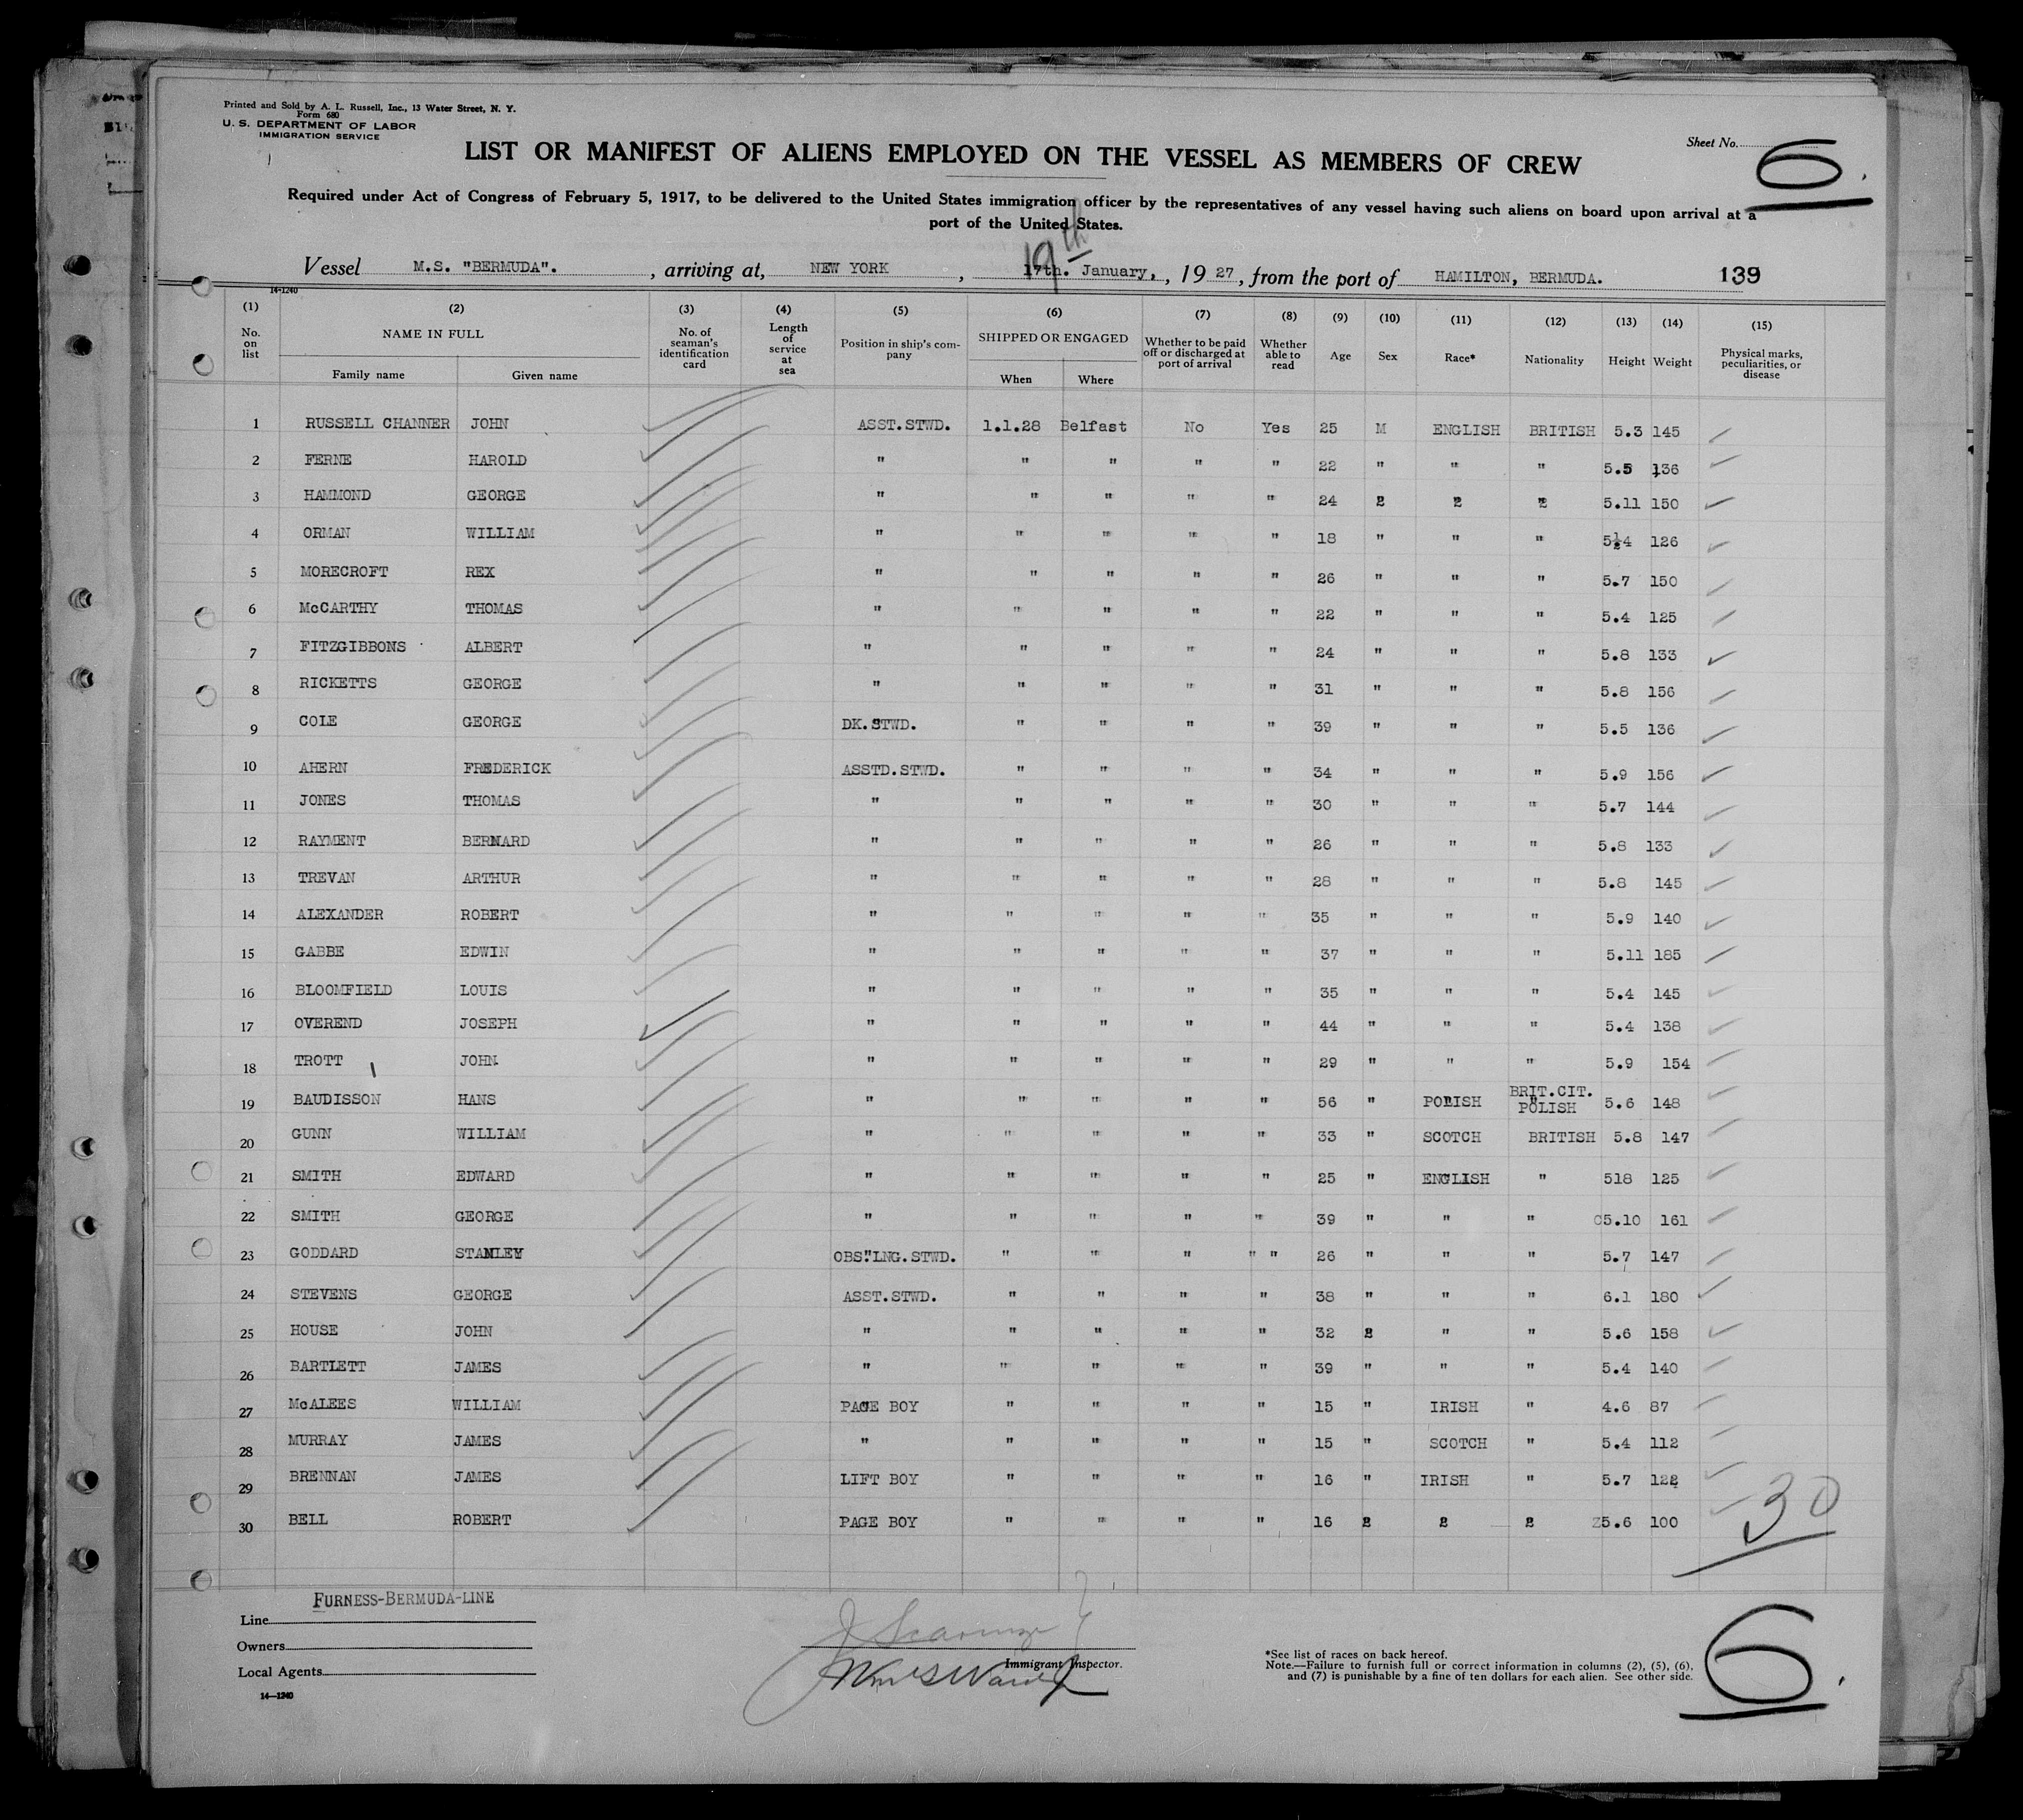 Printed and Sold by A. L. Russell, Inc., 13 Water Street, N. Y.
Form 680
U. S. DEPARTMENT OF LABOR
IMMIGRATION SERVICE
Sheet No. 6.
LIST OR MANIFEST OF ALIENS EMPLOYED ON THE VESSEL AS MEMBERS OF CREW
Required under Act of Congress of February 5, 1917, to be delivered to the United States immigration officer by the representatives of any vessel having such aliens on board upon arrival at a
port of the United States.
19th
Vessel M.S. "BERMUDA". , arriving at, NEW YORK , 17th. January, , 19 27 , from the port of HAMILTON, BERMUDA. 139
14-1240
(1) (2) (3) (4) (5) (6) (7) (8) (9) (10) (11) (12) (13) (14) (15)
No. on list NAME IN FULL Family name Given name No. of seaman's identification card Length of service at sea Position in ship's company SHIPPED OR ENGAGED When Where Whether to be paid off or discharged at port of arrival Whether able to read Age Sex Race* Nationality Height Weight Physical marks, peculiarities, or disease
1 RUSSELL CHANNER JOHN ASST.STWD. 1.1.28 Belfast No Yes 25 M ENGLISH BRITISH 5.3 145
2 FERNE HAROLD " " " " " 22 " " " 5.5 136
3 HAMMOND GEORGE " " " " " 24 2 2 2 5.11 150
4 ORMAN WILLIAM " " " " " 18 " " " 5½4 126
5 MORECROFT REX " " " " " 26 " " " 5.7 150
6 McCARTHY THOMAS " " " " " 22 " " " 5.4 125
7 FITZGIBBONS ALBERT " " " " " 24 " " " 5.8 133
8 RICKETTS GEORGE " " " " " 31 " " " 5.8 156
9 COLE GEORGE DK.STWD. " " " " 39 " " " 5.5 136
10 AHERN FREDERICK ASSTD.STWD. " " " " 34 " " " 5.9 156
11 JONES THOMAS " " " " " 30 " " " 5.7 144
12 RAYMENT BERNARD " " " " " 26 " " " 5.8 133
13 TREVAN ARTHUR " " " " " 28 " " " 5.8 145
14 ALEXANDER ROBERT " " " " " 35 " " " 5.9 140
15 GABBE EDWIN " " " " " 37 " " " 5.11 185
16 BLOOMFIELD LOUIS " " " " " 35 " " " 5.4 145
17 OVEREND JOSEPH " " " " " 44 " " " 5.4 138
18 TROTT JOHN " " " " " 29 " " " 5.9 154
19 BAUDISSON HANS " " " " " 56 " POLISH BRIT.CIT. POLISH 5.6 148
20 GUNN WILLIAM " " " " " 33 " SCOTCH BRITISH 5.8 147
21 SMITH EDWARD " " " " " 25 " ENGLISH " 518 125
22 SMITH GEORGE " " " " " 39 " " " 5.10 161
23 GODDARD STANLEY OBS"LNG.STWD. " " " " " 26 " " " 5.7 147
24 STEVENS GEORGE ASST.STWD. " " " " 38 " " " 6.1 180
25 HOUSE JOHN " " " " " 32 2 " " 5.6 158
26 BARTLETT JAMES " " " " " 39 " " " 5.4 140
27 McALEES WILLIAM PAGE BOY " " " " 15 " IRISH " 4.6 87
28 MURRAY JAMES " " " " " 15 " SCOTCH " 5.4 112
29 BRENNAN JAMES LIFT BOY " " " " 16 " IRISH " 5.7 122
30 BELL ROBERT PAGE BOY " " " " 16 2 2 2 5.6 100
30
Line FURNESS-BERMUDA-LINE
Owners
Local Agents
14—1240
Immigrant Inspector.
*See list of races on back hereof.
Note.—Failure to furnish full or correct information in columns (2), (5), (6),
and (7) is punishable by a fine of ten dollars for each alien. See other side.
6.